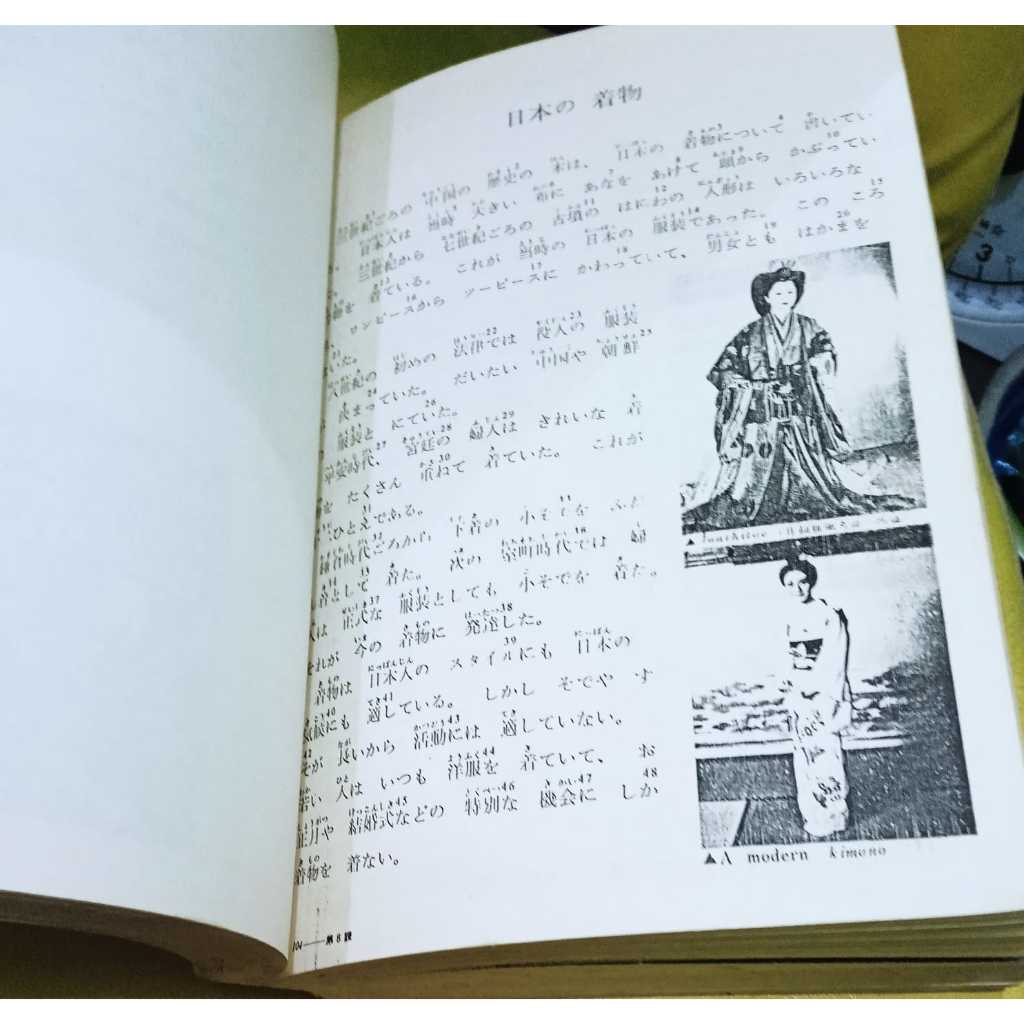 日本の 着物
世紀ごろの 中国の 歴史の 本は、 日本の 着物について 書いてい
日本人は 当時 大きい 布に あなを あけて 頭から かぶってい
三世紀から 七世紀ごろの 古墳の はにわの 人形は いろいろな
着ている。 これが 当時の 日本の 服装であった。 この ころ
ワンピースから ツーピースに かわっていて、 男女とも はかまを
いた。
八世紀の 初めの 法律では 役人の 服装
まっていた。 だいたい 中国や 朝鮮
服装と にていた。
平安時代、 宮廷の 婦人は きれいな 着
を たくさん 重ねて 着ていた。 これが
ひとえである。
鎌倉時代ごろから 下着の 小そでを ふだ
着として 着た。 次の 室町時代では 婦
人は 正式な 服装としても 小そでを 着た。
それが 今の 着物に 発達した。
着物は 日本人の スタイルにも 日本の
にも 適している。 しかし そでや す
そが 長いから 活動には 適していない。
若い 人は いつも 洋服を 着ていて、 お
正月や 結婚式などの 特別な 機会に しか
着物を 着ない。
▲A modern kimono
104——第8課